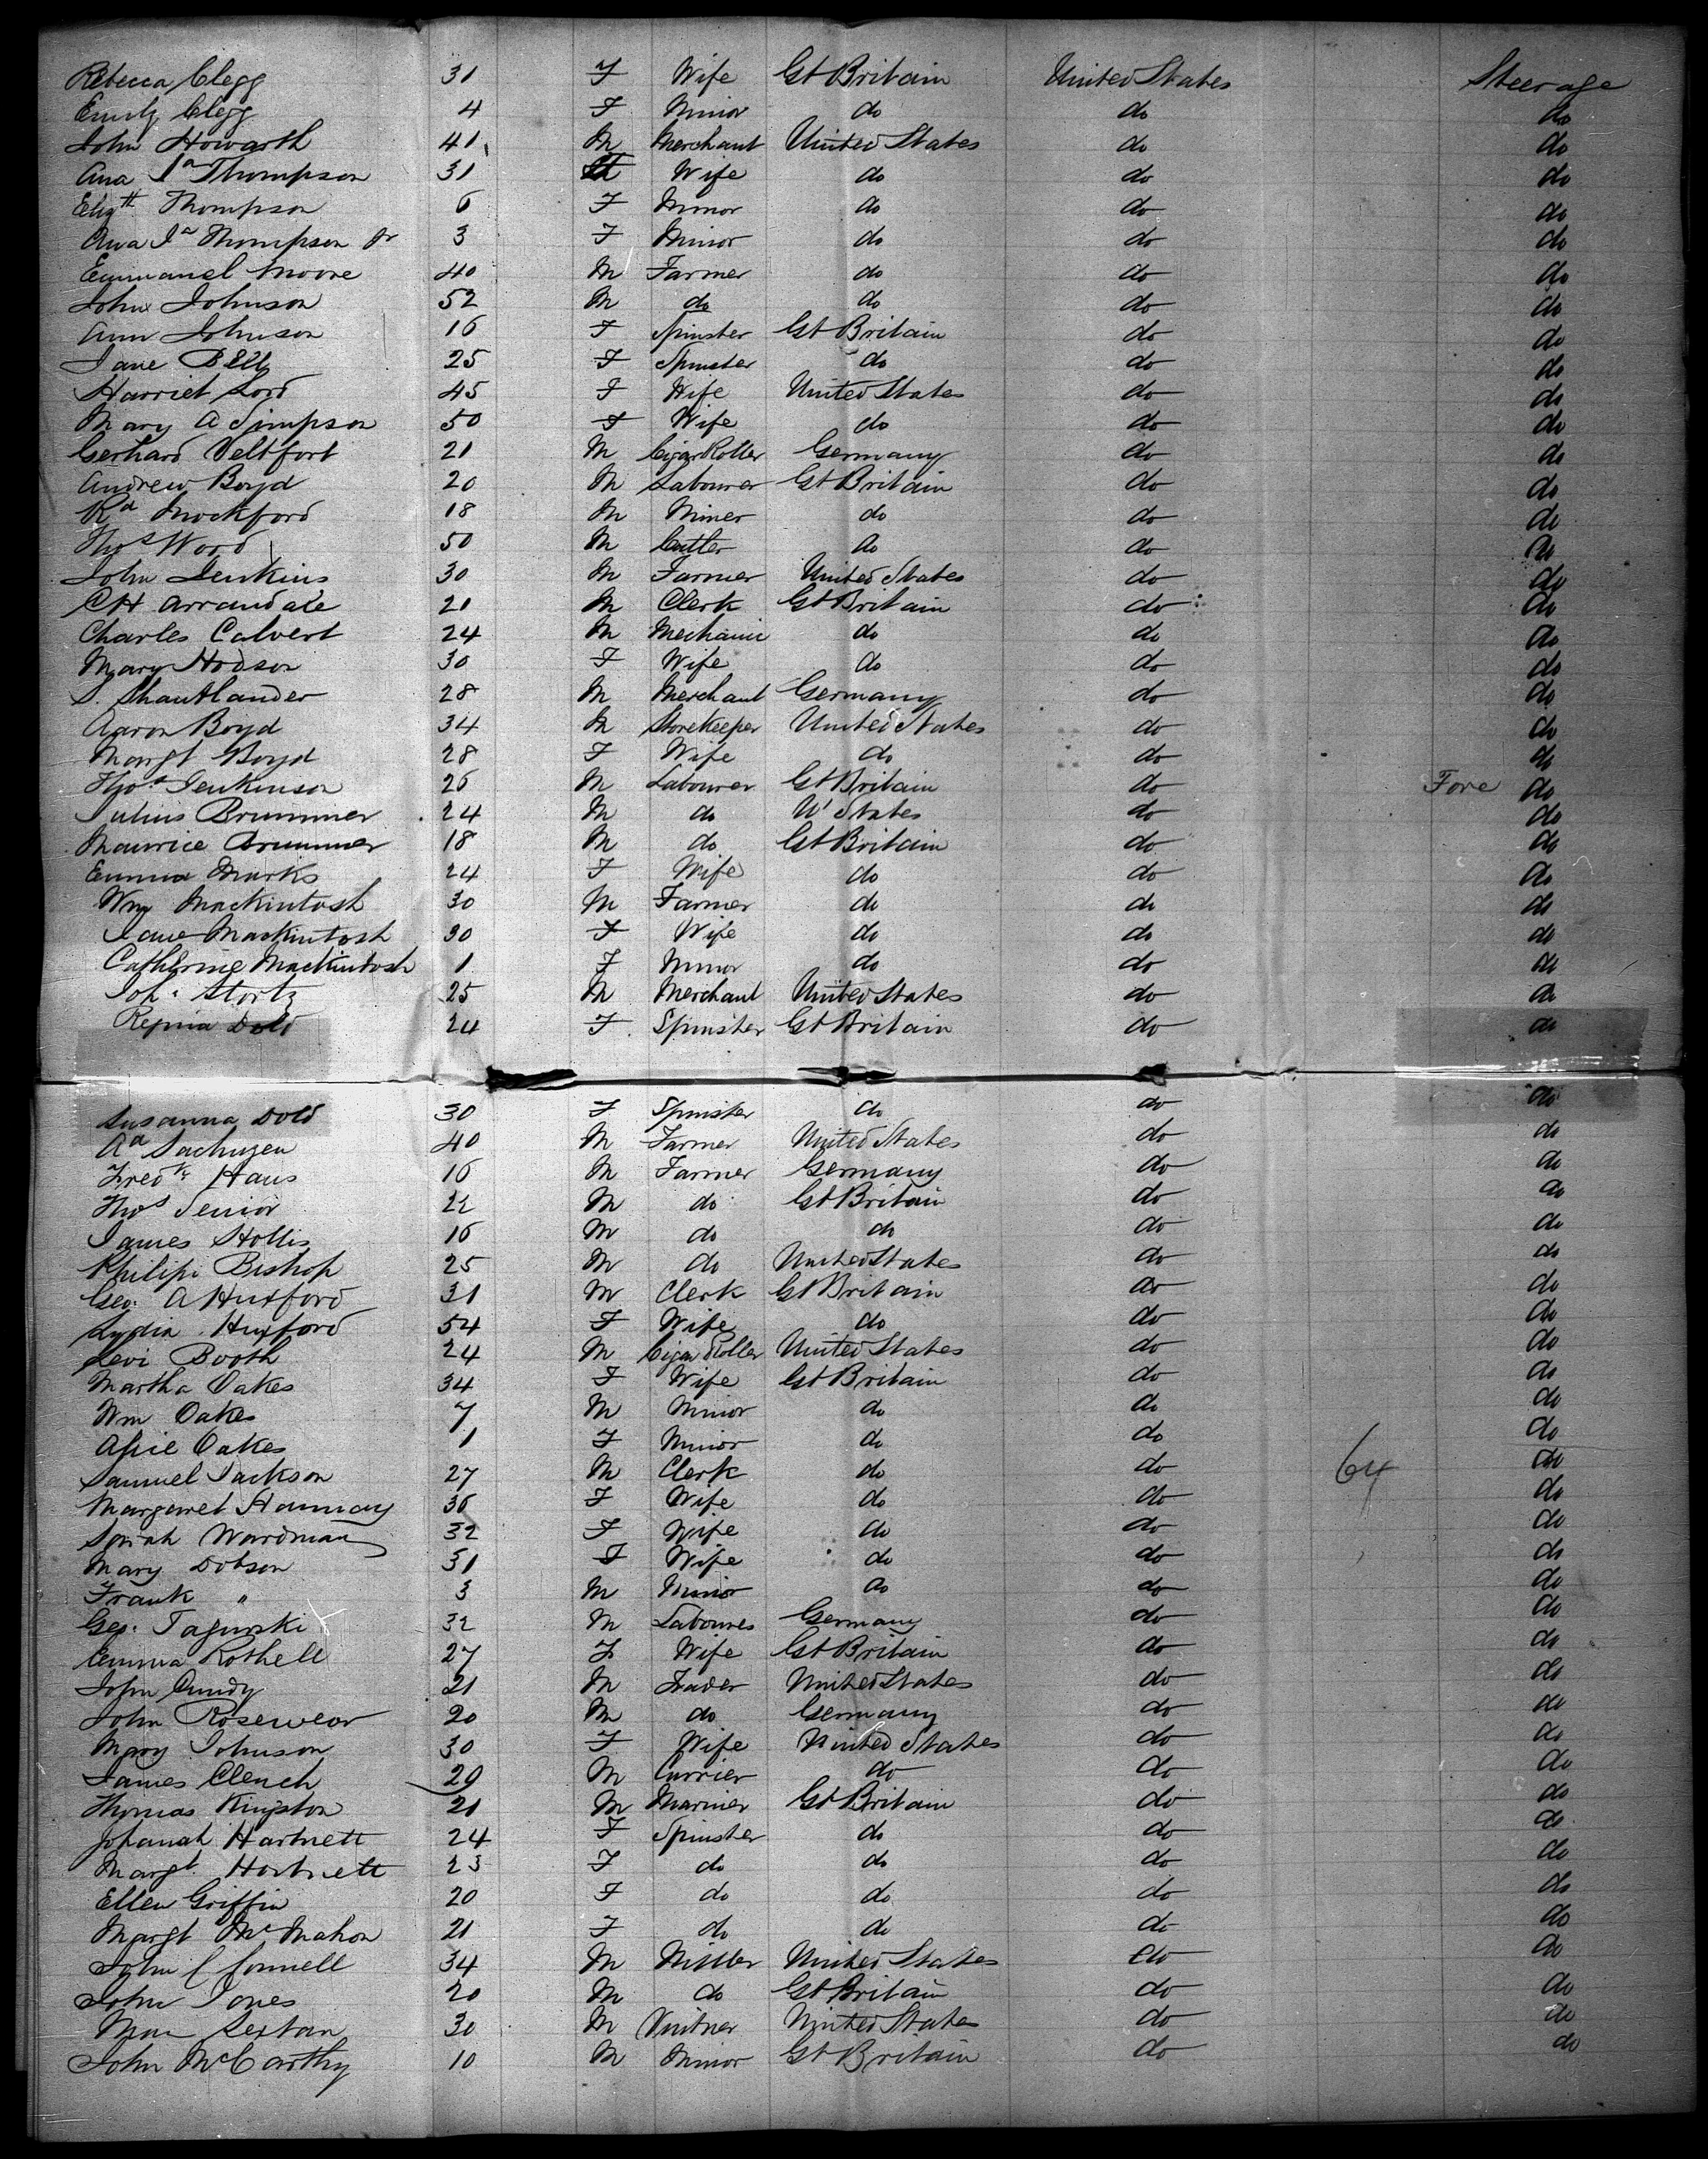 Rebecca Clegg 31 F Wife Gt Britain United States Steerage
Emily Clegg 4 F Minor do do do
John Howarth 41 M Merchant United States do do
Ana Ia Thompson 31 Wife do do do
Elizth Thompson 6 F Minor do do do
Ana Ia Thompson Jr 3 F Minor do do do
Emmanuel Moore 40 M Farmer do do do
John Johnson 52 M do do do do
Ann Johnson 16 F Spinster Gt Britain do do
Jane Bell 25 F Spinster do do do
Harriet Lord 45 F Wife United States do do
Mary A Simpson 50 F Wife do do do
Gerhard Veltfort 21 M Cigar Roller Germany do do
Andrew Boyd 20 M Labourer Gt Britain do do
Rd Mockford 18 M Miner do do do
Thos Word 50 M Cutler do do do
John Jenkins 30 M Farmer United States do do
C H Arrandale 21 M Clerk Gt Britain do do
Charles Calvert 24 M Mechanic do do do
Mary Hodson 30 F Wife do do do
S. Shautlander 28 M Merchant Germany do do
Aaron Boyd 34 M Storekeeper United States do do
Margt Boyd 28 F Wife do do do
Thos Jenkinson 26 M Labourer Gt Britain do Fore do
Julius Brummer 24 M do U States do do
Maurice Brummer 18 M do Gt Britain do do
Emma Marks 24 F Wife do do do
Wm Mackintosh 30 M Farmer do do do
Jane Mackintosh 30 F Wife do do do
Catherine Mackintosh 1 F Minor do do do
Joh. Stortz 25 M Merchant United States do do
Regina Dold 24 F Spinster Gt Britain do do
Susanna Dold 30 F Spinster do do do
Ad 40 M Farmer United States do do
Fredk Haus 16 M Farmer Germany do do
Thos Senior 22 M do Gt Britain do do
James Hollis 16 M do do do do
Philip Bishop 25 M do United States do do
Geo. A Huxford 31 M Clerk Gt Britain do do
Lydia Huxford 54 F Wife do do do
Levi Booth 24 M Cigar Roller United States do do
Martha Oakes 34 F Wife Gt Britain do do
Wm Oakes 7 M Minor do do do
Oakes 1 F Minor do do do
Samuel Jackson 27 M Clerk do do 64 do
Margaret Hannay 36 F Wife do do do
Sarah Wardman 32 F Wife do do do
Mary Dobson 31 F Wife do do do
Frank " 3 M Minor do do do
Geo. Tagurski 32 M Labourer Germany do do
Emma Rothell 27 F Wife Gt Britain do do
John Cundy 21 M Trader United States do do
John Rosewear 20 M do Germany do do
Mary Johnson 30 F Wife United States do do
James Clench 29 M Currier do do do
Thomas Kingston 21 M Mariner Gt Britain do do
Johanah Hartnett 24 F Spinster do do do
Margt Hartnett 23 F do do do do
Ellen Griffin 20 F do do do do
Margt McMahon 21 F do do do do
John C Connell 34 M Miller United States do do
John Jones 20 M do Gt Britain do do
Sextan 30 M Vintner United States do do
John McCarthy 10 M Minor Gt Britain do do